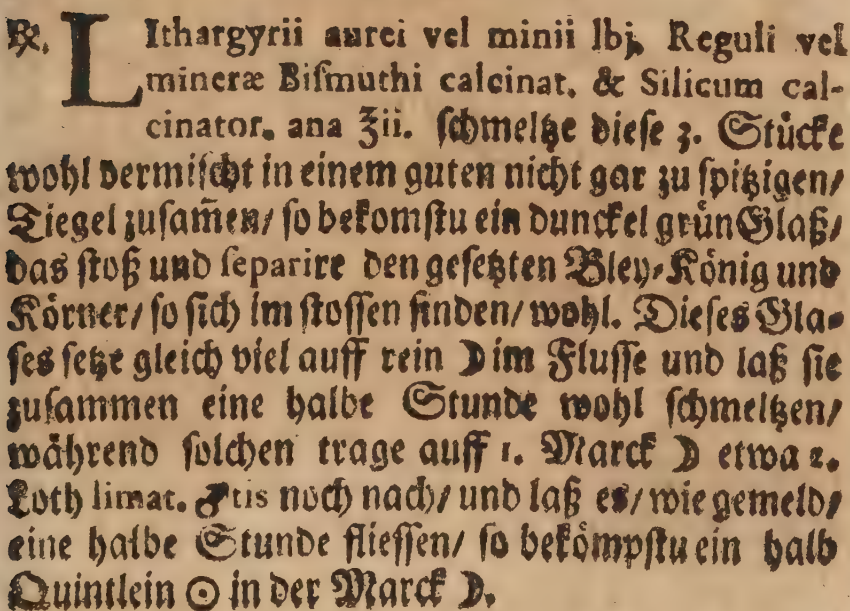 ℞. LIthargyrii aurei vel minii lbj. Reguli vel
mineræ Biſmuthi calcinat. & Silicum cal-
cinator. ana ℥ii. ſchmeltze dieſe 3. Stücke
wohl vermiſcht in einem guten nicht gar zu ſpitzigen/
Tiegel zuſam̃en/ ſo bekomſtu ein dunckel grün Glaß/
das ſtoß und ſeparire den geſetzten Bley-König und
Körner/ ſo ſich im ſtoſſen finden/ wohl. Dieſes Gla-
ſes ſetze gleich viel auff rein ☽ im Fluſſe und laß ſie
zuſammen eine halbe Stunde wohl ſchmeltzen/
während ſolchen trage auff 1. Marck ☽ etwa 2.
Loth limat. ♂tis noch nach/ und laß es/ wie gemeld/
eine halbe Stunde flieſſen/ ſo bekömpſtu ein halb
Quintlein ☉ in der Marck ☽.